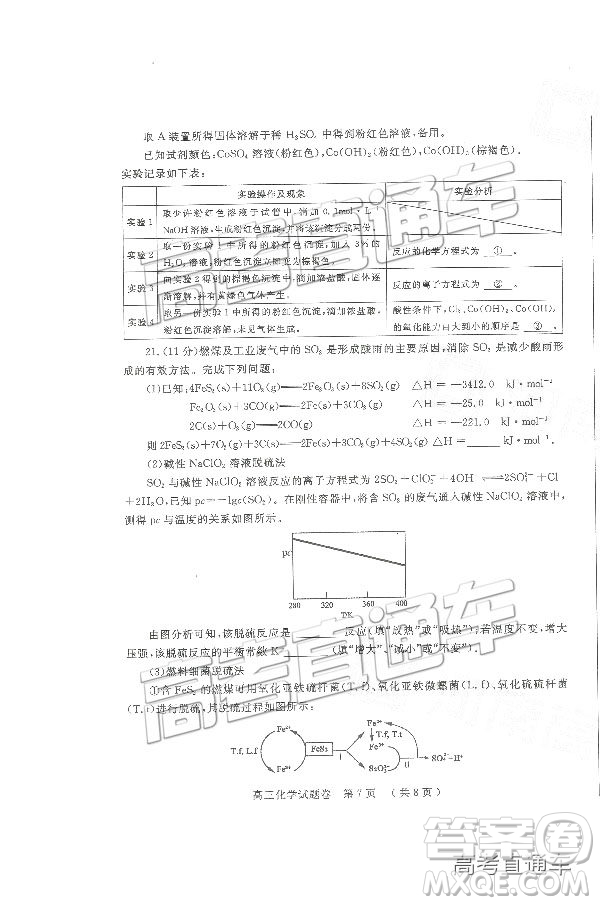 取 A 装置所得固体溶解于稀 H₂SO₄ 中得到粉红色溶液,备用。
已知试剂颜色:CoSO₄ 溶液(粉红色),Co(OH)₂(粉红色),Co(OH)₃(棕褐色)。
实验记录如下表:
实验操作及现象 实验分析
实验 1 取少许粉红色溶液于试管中,滴加 0.1mol·L⁻¹
NaOH 溶液,生成粉红色沉淀,并将溶液分成两份
实验 2 取一份实验 1 中所得的粉红色沉淀,加入 3%的
H₂O₂ 溶液,粉红色沉淀立即变为棕褐色。 反应的化学方程式为 ① 。
实验 3 向实验 2 得到的棕褐色沉淀中,滴加浓盐酸,固体逐
渐溶解,并有黄绿色气体产生。 反应的离子方程式 ② 。
实验 4 取另一份实验 1 中所得的粉红色沉淀,滴加浓盐酸,
粉红色沉淀溶解,未见气体生成。 酸性条件下,Cl₂、Co(OH)₂、Co(OH)₃
的氧化能力由大到小的顺序是 ③ 。
21.(11 分)燃煤及工业废气中的 SO₂ 是形成酸雨的主要原因,消除 SO₂ 是减少酸雨形
成的有效方法。完成下列问题:
(1)已知:4FeS₂(s)+11O₂(g)══2Fe₂O₃(s)+8SO₂(g) △H = −3412.0 kJ·mol⁻¹
Fe₂O₃(s)+3CO(g)══2Fe(s)+3CO₂(g) △H = −25.0 kJ·mol⁻¹
2C(s)+O₂(g)══2CO(g) △H = −221.0 kJ·mol⁻¹
则 2FeS₂(s)+7O₂(g)+3C(s)══2Fe(s)+3CO₂(g)+4SO₂(g) △H=
(2)碱性 NaClO₂ 溶液脱硫法
SO₂ 与碱性 NaClO₂ 溶液反应的离子方程式为 2SO₂+ClO₂⁻+4OH⁻ ⇌2SO₄²⁻+Cl⁻
+2H₂O,已知 pc=−lgc(SO₂)。在刚性容器中,将含 SO₂ 的废气通入碱性 NaClO₂ 溶液中,
测得 pc 与温度的关系如图所示。
pc
280 320 360 400
T/K
由图分析可知,该脱硫反应是 反应(填“放热”或“吸热”);若温度不变,增大
压强,该脱硫反应的平衡常数 K (填“增大”、“减小”或“不变”)。
(3)燃料细菌脱硫法
①含 FeS₂ 的燃煤可用氧化亚铁硫杆菌(T.f)、氧化亚铁微螺菌(L.f)、氧化硫硫杆菌
(T.t)进行脱硫,其脱硫过程如图所示:
Fe²⁺ T.f、L.f Fe³⁺ FeS₂ Ⅰ Fe²⁺ T.f、T.t S₂O₃²⁻ Ⅱ SO₄²⁻+H⁺
高三化学试题卷 第 7 页 (共 8 页)
高考直通车
答案圈
高考直通车
MXQE.COM